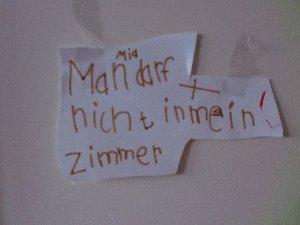 Mia
Man darf
nicht in mein!
zimmer